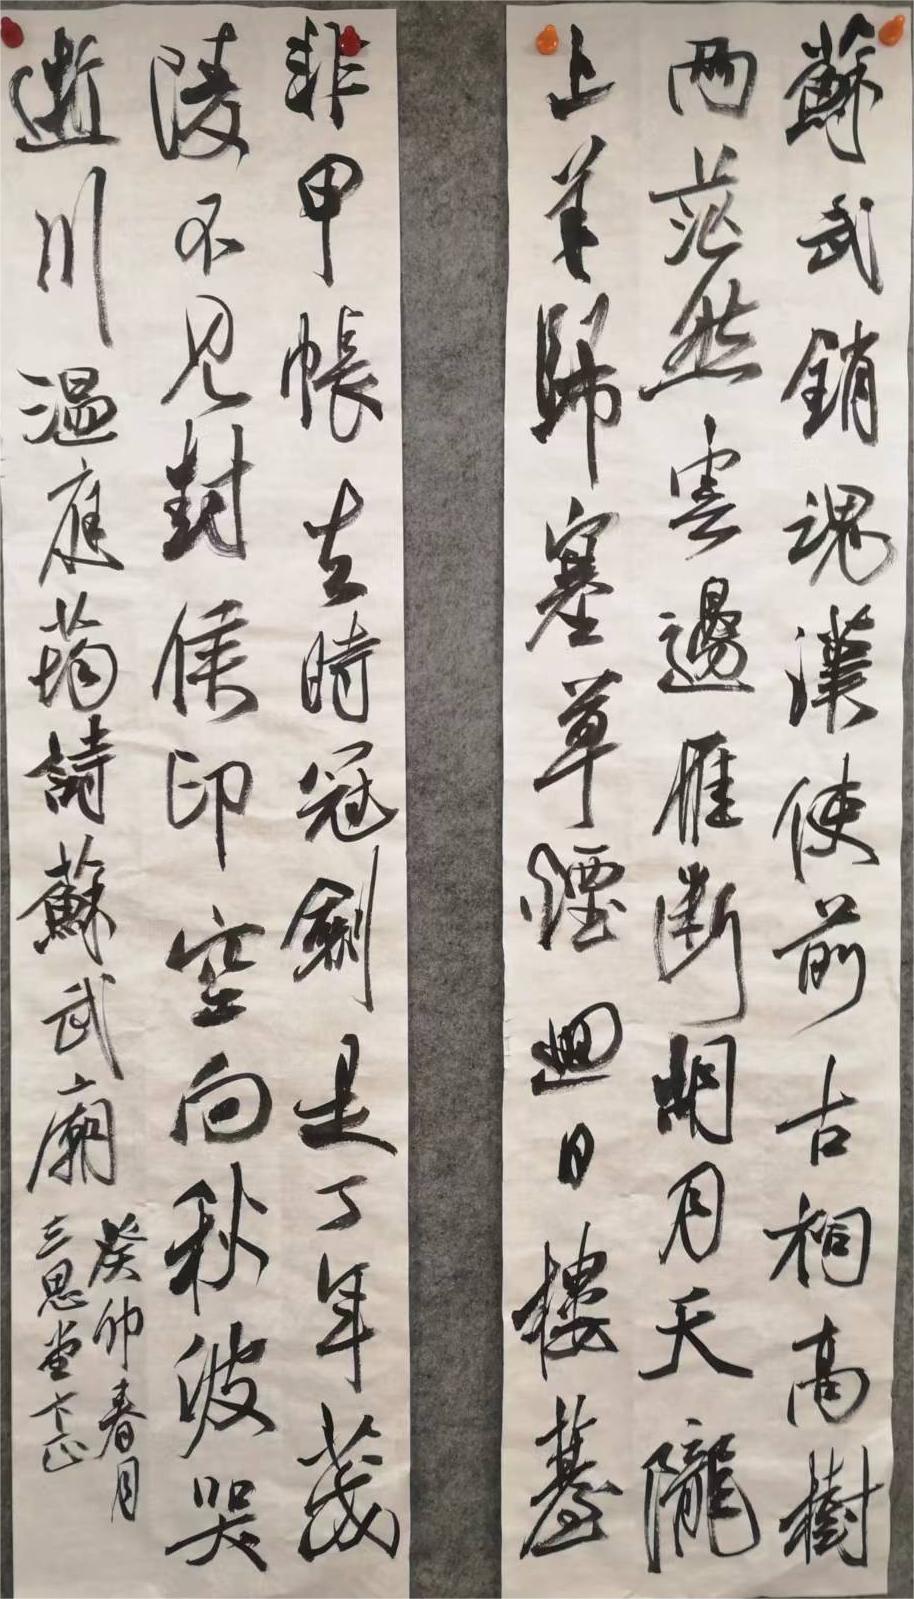 蘇武銷魂漢使前古祠高樹
兩茫然雲邊雁斷胡月天隴
上羊歸塞草煙迴日樓臺
非甲帳去時冠劍是丁年茂
陵不見封侯印空向秋波哭
逝川温庭筠詩蘇武廟
癸卯春月
三思堂